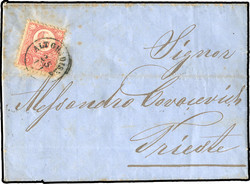 Signor
Alessandro Covacevich
Trieste